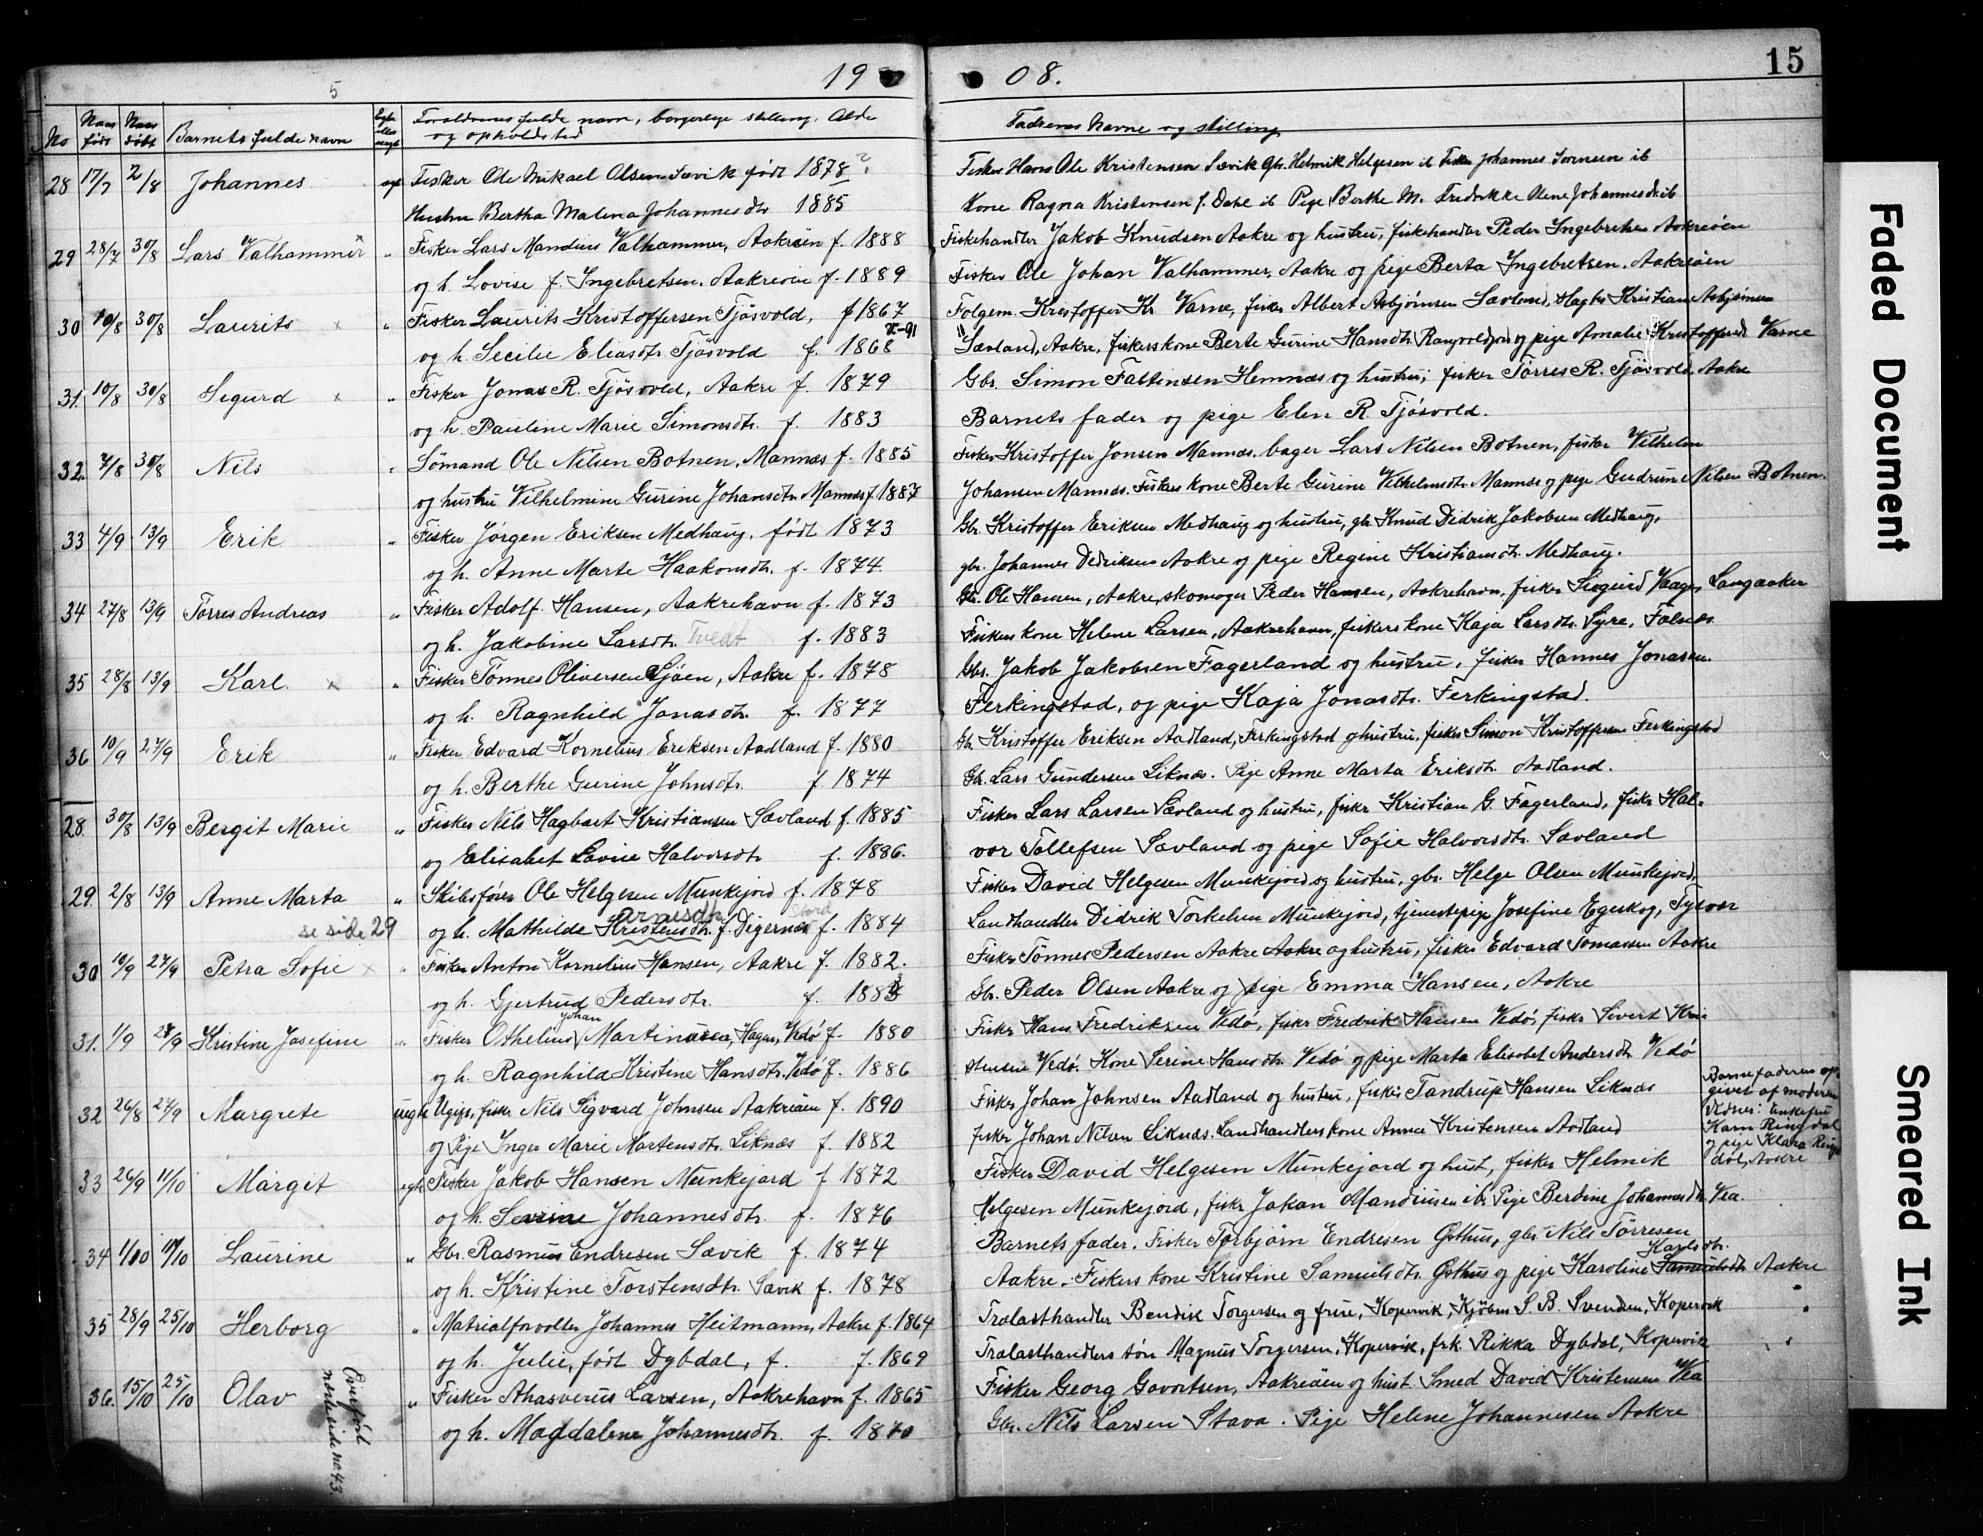 15
5
19 08.
No
Naar født
Naar døbt
Barnets fulde navn
Egte eller uegte
Forældrenes fulde navn, borgerlige stilling, Alder
og opholdsted
Faderenes navne og stilling
28 17/7 2/8 Johannes egt Fisker Ole Mikael Olsen Sævik født 1878 ? Fisker Hans Ole Kristensen Sævik Gbr. Helmik Helgesen ib Fisker Johannes Sørensen ib
Hustru Bertha Malena Johannesdtr 1885 Kone Ragna Kristensen f. Dahl ib Pige Berthe M. Fredrikke Olene Johannesdtr ib
29 28/7 30/8 Lars Valhammer x " Fisker Lars Mandius Valhammer, Aakreøen f. 1888 Fiskehandler Jakob Knudsen Aakre og hustru, fiskehandler Peder Ingebretsen Aakreøen
og h. Lovise f. Ingebretsen. Aakreøen f. 1889 Fisker Ole Johan Valhammer, Aakre og pige Berta Ingebretsen. Aakreøen
30 19/8 30/8 Laurits x " Fisker Laurits Kristoffersen Tjøsvold, f 1867 Folgem. Kristoffer Kr. Varne, fisker Albert Asbjørnsen Sævland, Hagb. Kristian Asbjørnsen
og h. Secilie Eliasdtr Tjøsvold f. 1868 Sævland, Aakre, fiskers kone Berte Gurine Hansdtr Rangvoldjord og pige Amalie Kristoffersdtr Varne
31. 10/8 30/8 Sigurd x " Fisker Jonas R. Tjøsvold, Aakre f. 1879 Gbr. Simon Fastensen Hemnæs og hustru; fisker Tørres R. Tjøsvold. Aakre
og h. Pauline Marie Simonsdtr. f. 1883 Barnets fader og pige Elen R. Tjøsvold.
32. 7/8 30/8 Nils " Sømand Ole Nilsen Botnen, Mannæs f. 1885 Fisker Kristoffer Jonsen Mannæs. bager Lars Nilsen Botnen, fisker Vilhelm
og hustru Vilhelmine Gurine Johansdtr Mannæs f. 1887 Johansen Mannæs. Fiskers kone Berte Gurine Vilhelmsdtr Mannæs og pige Gudrun Nilsen Botnen.
33 4/9 13/9 Erik " Fisker Jørgen Eriksen Medhaug, født 1873 Gbr. Kristoffer Eriksen Medhaug og hustru, gbr Knud Didrik Jakobsen Medhaug,
og h. Anne Marte Haakonsdtr. f. 1874 gbr. Johannes Dideriksen Aakre og pige Regine Kristiansdtr. Medhaug.
34 27/8 13/9 Tørres Andreas " Fisker Adolf Hansen, Aakrehavn f. 1873 Gbr. Ole Hansen, Aakre, skomager Peder Hansen, Aakrehavn, fisker Sigurd Vaage, Langaaker
og h. Jakobine Larsdtr. Tvedt f. 1883 Fiskers kone Helene Larsen, Aakrehavn, fiskers kone Kaja Larsdtr. Syre, Falnæs
35 28/8 13/9 Karl. x " Fisker Tønnes Oliversen Sjøen, Aakre f. 1878 Gbr. Jakob Jakobsen Fagerland og hustru, fisker Hannes Jonasen.
og h. Ragnhild Jonasdtr. f. 1877 Ferkingstad, og pige Kaja Jonasdtr. Ferkingstad.
36 10/9 27/9 Erik " Fisker Edvard Kornelius Eriksen Aadland f. 1880 Gbr Kristoffer Eriksen Aadland, Ferkingstad og hustru, fisker Simon Kristoffersen Ferkingstad
og h. Berthe Gurine Johnsdtr. f 1874 Gbr. Lars Gundersen Liknæs. Pige Anne Marta Eriksdtr. Aadland.
28. 30/8 13/9 Bergit Marie " Fisker Nils Hagbart Kristiansen Sævland f. 1885 Fisker Lars Larsen Sævland og hustru, fiskr Kristian G. Fagerland, fiskr Hal-
og Elisabet Lovise Halvorsdtr f. 1886. vor Tollefsen Sævland og pige Sofie Halvorsdtr. Sævland
29. 2/8 13/9 Anne Marta " Skibsfører Ole Helgesen Munkejord f. 1878 Fisker David Helgesen Munkejord og hustru, gbr. Helge Olsen Munkejord,
se side 29 og h. Mathilde Kristensdtr. Arnesdtr f. Digernæs Stord f. 1884 Landhandler Didrik Torkelsen Munkejord, tjenestepige Josefine Egeskog, Tysvær
30 10/9 27/9 Petra Sofie x " Fisker Anton Kornelius Hansen, Aakre f. 1882. Fisker Tønnes Pedersen Aakre Aakre og hustru, fisker Edvard Tomassen Aakre
og h. Gjertrud Pedersdtr. f. 1883 Gbr. Peder Olsen Aakre og pige Emma Hansen, Aakre
31. 1/9 27/9 Kristine Josefine " Fisker Othelius Johan Martinusen, Hagen, Vedø f. 1880 Fisker Hans Fredriksen Vedø, fiskr Fredrik Hansen Vedø, fiskr Sivert Kri-
og h. Ragnhild Kristine Hansdtr. Vedø f. 1886 stensen Vedø. Kone Serine Hansdtr. Vedø og pige Marta Elisabet Andersdtr Vedø
32 26/8 27/9 Margrete uegte Ugift, fiskr Nils Sigvard Johnsen Aakreøen f. 1890 Fisker Johan Johnsen Aadland og hustru, fisker Tandrup Hansen Liknæs
og Pige Inger Marie Mortensdtr. Liknæs f. 1882 fisker Johan Nilsen Liknæs. Landhandlers kone Anna Kristensen Aadland
Barnefaderen op-
givet af moderen
Vidner: enkefru
Karn Ringdal
og pige Klara Ring-
dal, Aakre
33 26/9 11/10 Margit egte Fisker Jakob Hansen Munkejord f 1872 Fisker David Helgesen Munkejord og hust, fisker Helmik
og h. Severine Johannesdtr. f. 1876 Helgesen Munkejord, fiskr Jakan Mandiusen ib. Pige Berdine Johannesdtr Vea.
34 1/10 11/10 Laurine " Gbr. Rasmus Endresen Sævik f. 1874 Barnets fader. Fisker Torbjørn Endresen Østhus, gbr. Nils Tørresen
og h. Kristine Torstensdtr. Sævik f. 1878 Aakre - Fiskers kone Kristine Samuelsdtr. Østhus og pige Karoline Samuelsdtr Karlsdtr. Aakre
35 28/9 25/10 Herborg " Matrialforvalter Johannes Heitmann, Aakre f. 1864 Trælasthandler Bendik Torgersen og frue, Kopervik, Kjøbm S. B. Svendsen, Kopervik
og h. Julie, født Dybdal, f. f. 1869 Trælasthandlers søn Magnus Torgersen, Kopervik, frk. Rikka Dybdal, Kopervik
36. 15/10 25/10 Olav " Fisker Ahasverus Larsen, Aakrehavn f. 1865 Fisker Georg Govertsen, Aakreøen og hust. Smed David Kristensen Vea
og h. Magdalene Johannesdtr. f. 1870 Gbr. Nils Larsen Stava. Pige Helene Johannesen Aakre
Overført
næste side no. 43.
Faded Document
Smeared Ink